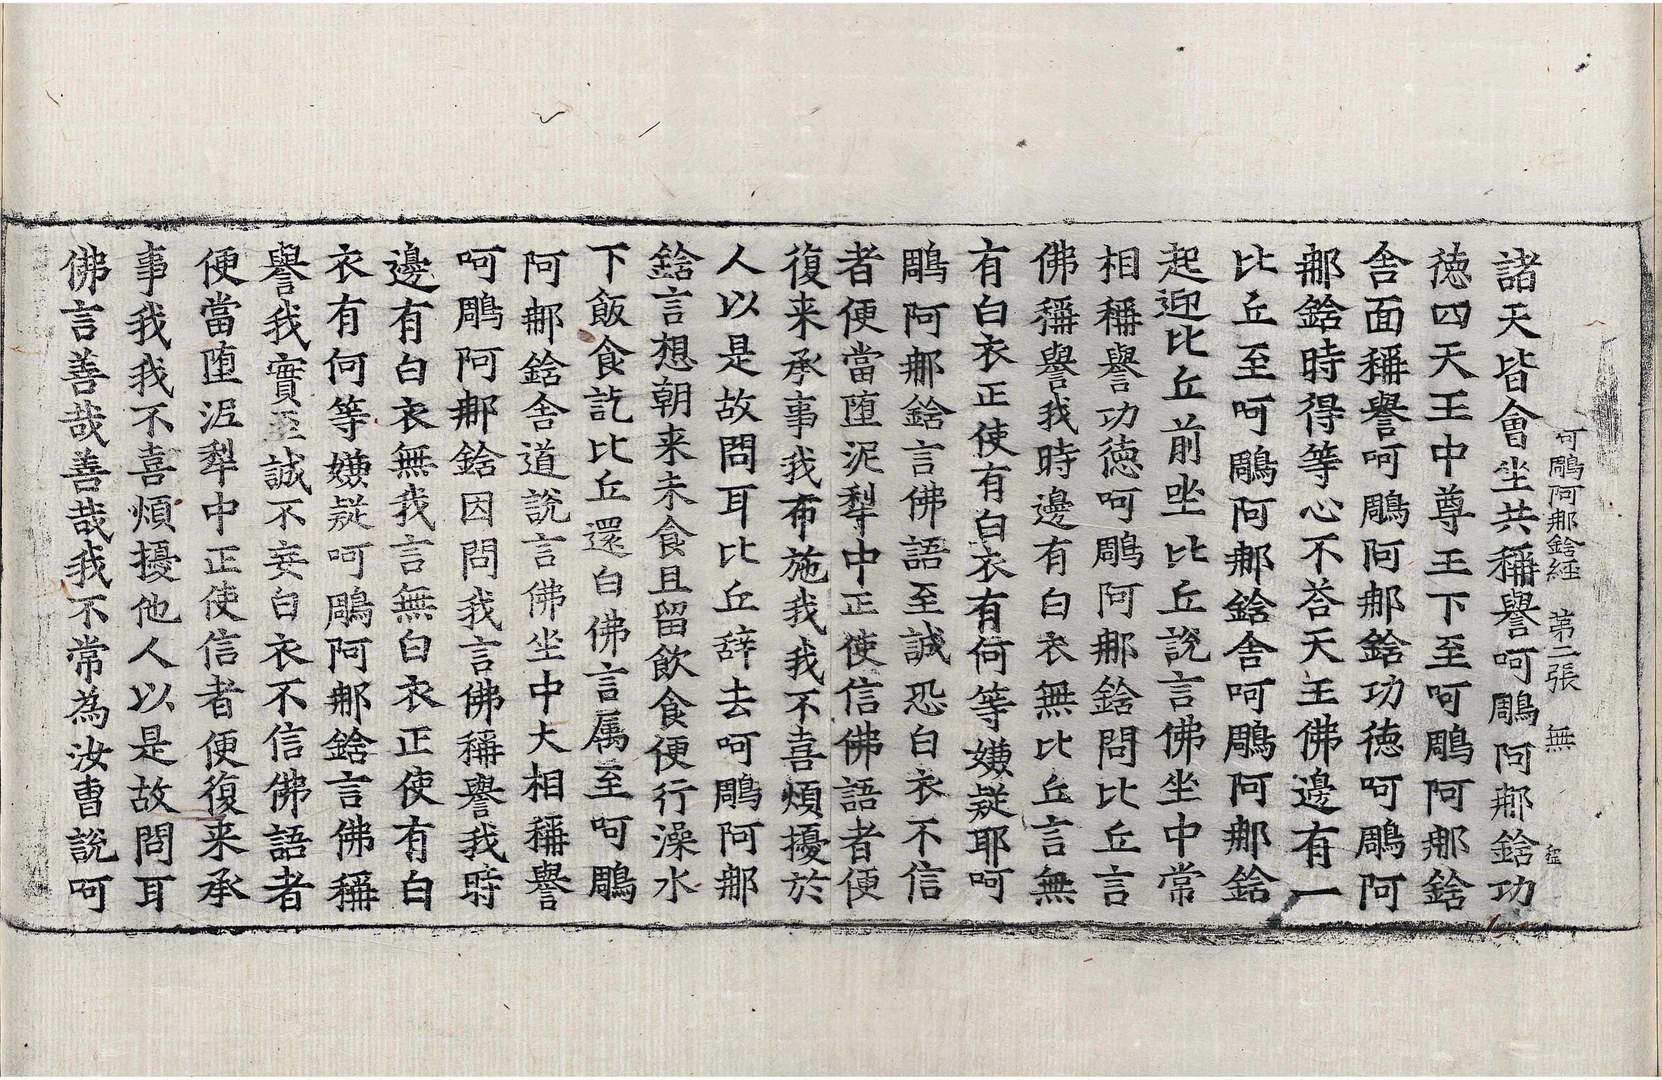 呵鵰阿那鋡経　第二張　無
諸天皆會坐共稱譽呵鵰阿那鋡功
徳四天王中尊王下至呵鵰阿那鋡
舎面稱譽呵鵰阿那鋡功徳呵鵰阿
那鋡時得等心不荅天王佛邊有一
比丘至呵鵰阿那鋡舎呵鵰阿那鋡
起迎比丘前坐比丘說言佛坐中常
相稱譽功徳呵鵰阿那鋡問比丘言
佛稱譽我時邊有白衣無比丘言無
有白衣正使有白衣有何等嫌疑耶呵
鵰阿那鋡言佛語至誠恐白衣不信
者便當堕泥犁中正使信佛語者便
復来承事我布施我我不喜煩擾於
人以是故問耳比丘辞去呵鵰阿那
鋡言想朝来未食且留飲食便行澡水
下飯食訖比丘還白佛言属至呵鵰
阿那鋡舎道說言佛坐中大相稱譽
呵鵰阿那鋡因問我言佛稱譽我時
邊有白衣無我言無白衣正使有白
衣有何等嫌疑呵鵰阿那鋡言佛稱
譽我實至誠不妄白衣不信佛語者
便當堕泥犁中正使信者便復来承
事我我不喜煩擾他人以是故問耳
佛言善哉善哉我不常為汝曹說呵